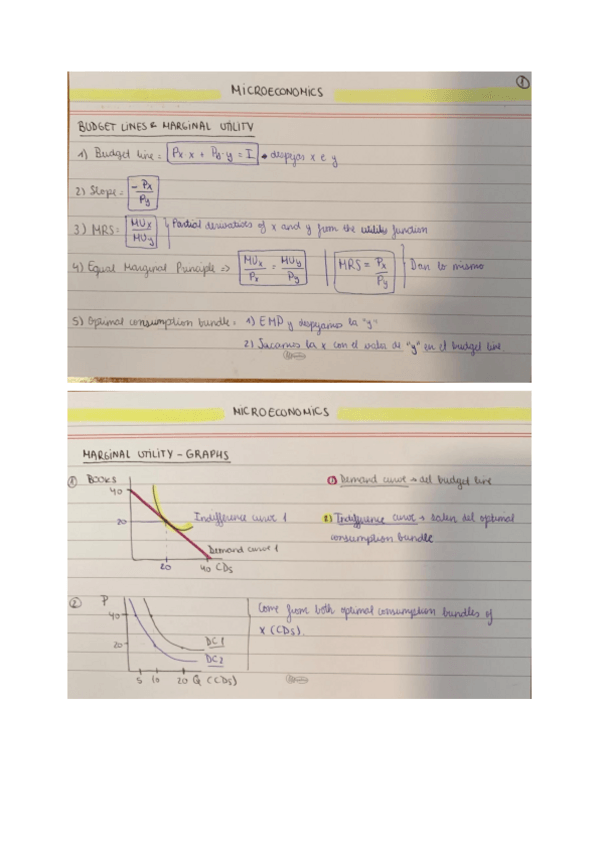 MICROECONOMICS
1
BUDGET LINES & MARGINAL UTILITY
1) Budget line = Px·x + Py·y = I → despejas x e y
2) Slope = -Px/Py
3) MRS = MUx/MUy Partial derivatives of x and y from the utility function
4) Equal Marginal Principle => MUx/Px = MUy/Py MRS = Px/Py Dan lo mismo
5) Optimal consumption bundle: 1) EMP y despejamos la "y"
2) Sacamos la x con el valor de "y" en el budget line
MICROECONOMICS
MARGINAL UTILITY - GRAPHS
1 BOOKS
40
20
Indifference curve 1
Demand curve 1
20 40 CDs
1) Demand curve → del budget line
2) Indifference curve → salen del optimal
consumption bundle
2 P
40
20
DC1
DC2
5 10 20 Q (CDs)
Come from both optimal consumption bundles of
x (CDs).